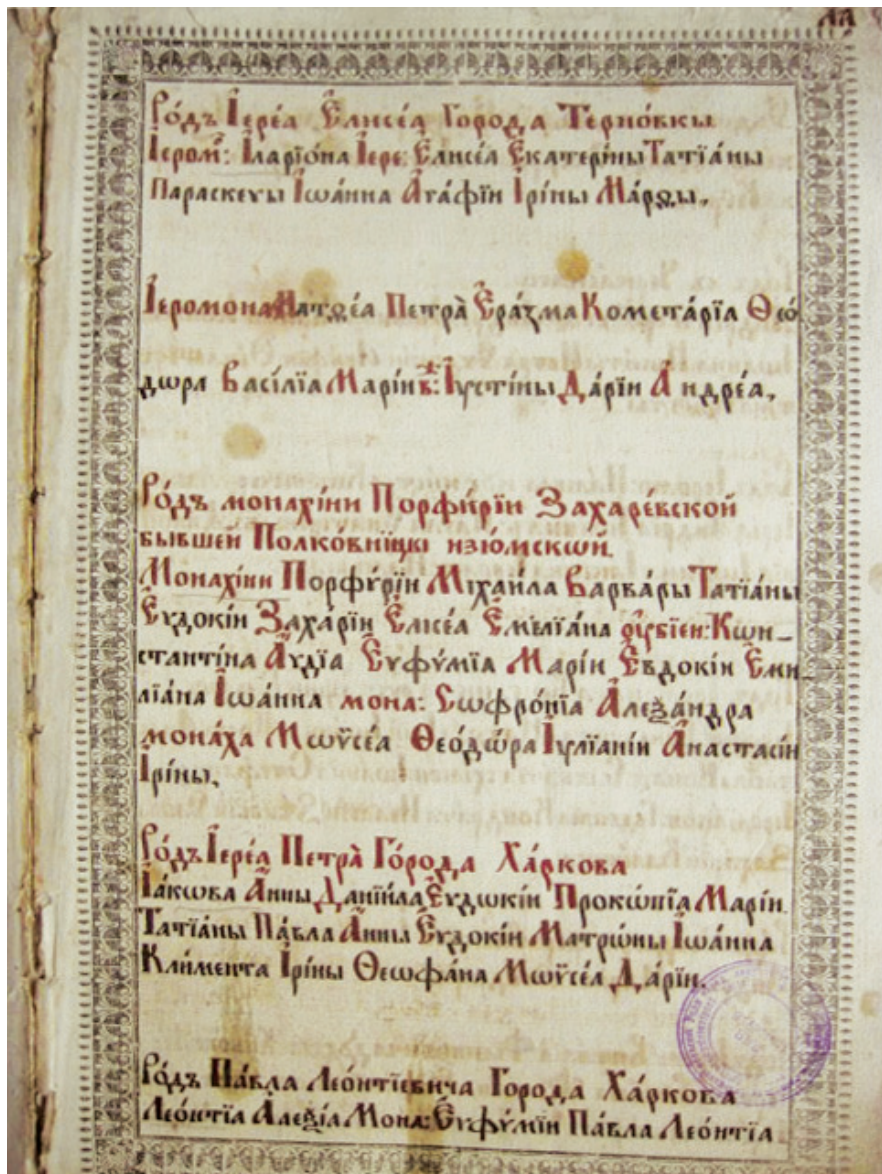 Ро́дъ Іере́а Єлисе́а Города Терно́вкы
Іером҃: Іларїѡ́на Іере: Єлисе́а Єкатері́ны Татїа́ны
Параскеѵы Іѡа́нна Ага́фїи Ірі́ны Ма́рѳы.
Іеромона Матѳе́а Петра̀ Єра́зма Комета́рїа Ѳео́
дѡра Васі́лїа Марі́и в҃: Іусті́ны Да́рїи Андре́а.
Ро́дъ мона́хіни Порфи́рїи Захаре́вской
бывшей Полковні́цы изю́мскѡй.
Мона́хіни Порфѵ́рїи Міхаи́ла Варва́ры Татїа́ны
Єѵдокі́и Заха́рїи Єлисе́а Ємилїа́на ѹбїен: Кѡн_
стантї́на Аѵдїа Єѵфѵ́мїа Марі́и Євдокі́и Єми_
лїа́на Іѡа́нна мона: Сѡфро́нїа Алеѯа́ндра
мона́ха Мѡѵсе́а Ѳео́дѡра Іулїані́и Анастасі́и
Ірі́ны.
Ро́дъ Іере́а Петра̀ Го́рода Ха́ркова
Іа́кѡва А́нны Данїи́ла Єѵдѡкі́и Проко́пїа Марі́и
Татїа́ны Па́вла А́нны Єѵдокі́и Матрѡ́ны Іѡа́нна
Кли́мента Ірі́ны Ѳеѡфа́на Мѡѵсе́а Да́рїи.
Ро́дъ Па́вла Лео́нтїевича Города Ха́ркова
Лео́нтїа Алеѯі́а Мона: Єѵфѵ́мїи Па́вла Лео́нтїа